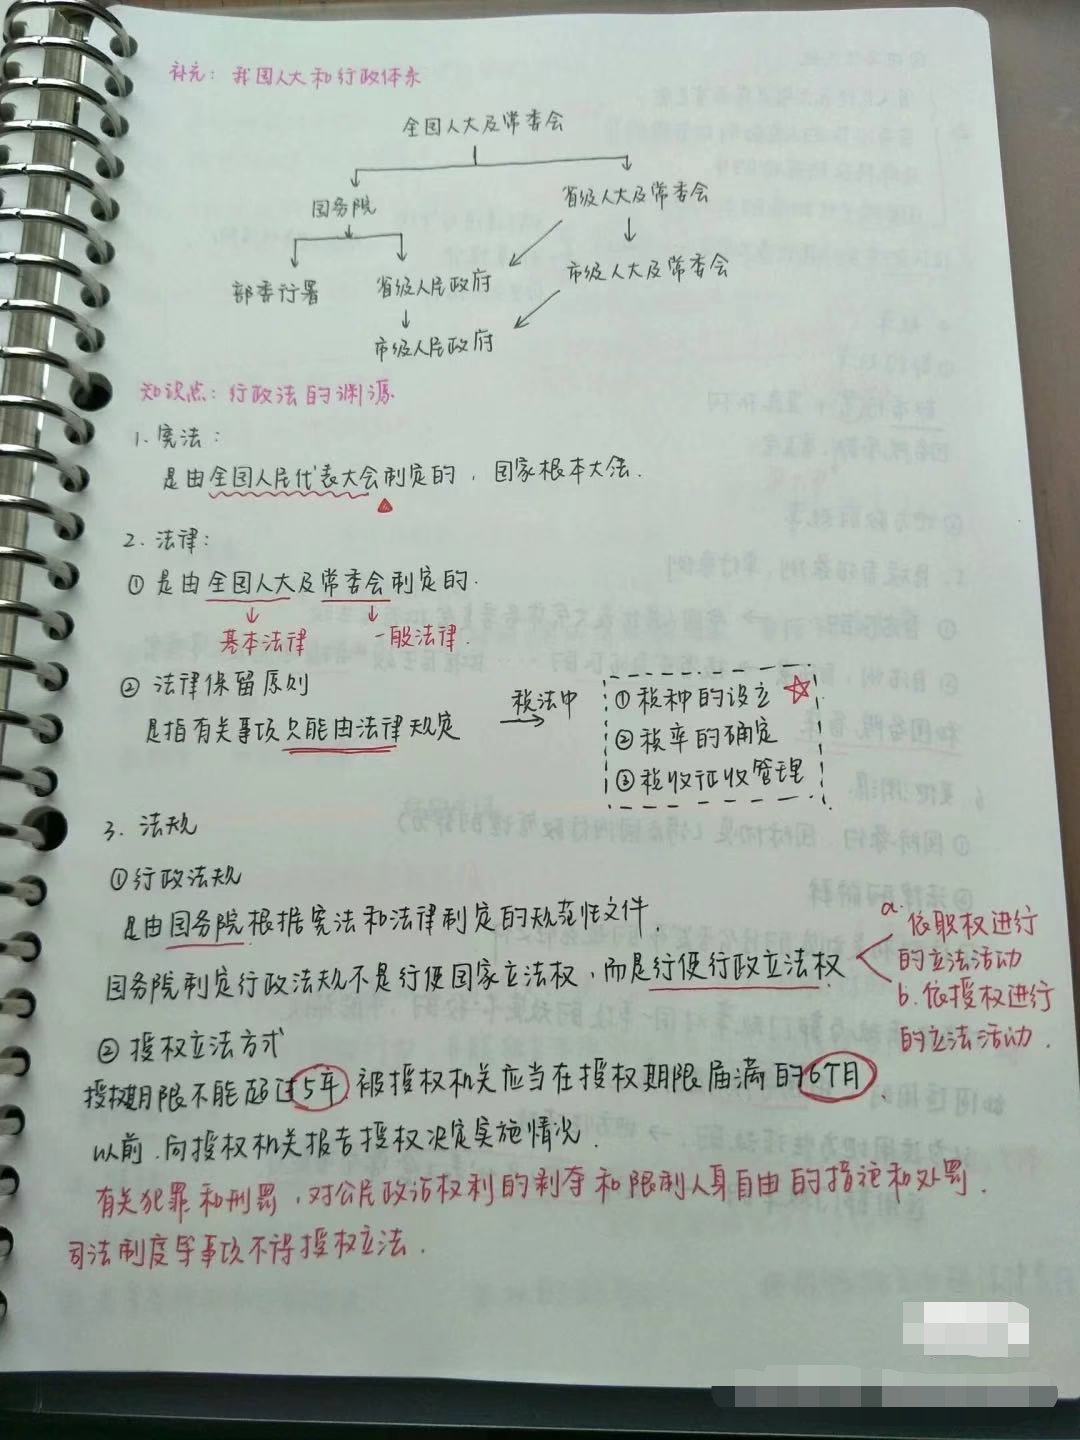 补充：我国人大和行政体系
全国人大及常委会
国务院
省级人大及常委会
部委行署
省级人民政府
市级人大及常委会
市级人民政府
知识点：行政法的渊源
1.宪法：
是由全国人民代表大会制定的，国家根本大法.
2.法律：
①是由全国人大及常委会制定的.
基本法律 一般法律.
②法律保留原则
是指有关事项只能由法律规定
税法中
①税种的设立
②税率的确定
③税收征收管理
3.法规
①行政法规
是由国务院根据宪法和法律制定的规范性文件.
国务院制定行政法规不是行使国家立法权，而是行使行政立法权
a.依职权进行
的立法活动
b.依授权进行
的立法活动.
②授权立法方式
授权期限不能超过5年.被授权机关应当在授权期限届满的6个月
以前.向授权机关报告授权决定实施情况.
有关犯罪和刑罚，对公民政治权利的剥夺和限制人身自由的措施和处罚.
司法制度等事项不得授权立法.